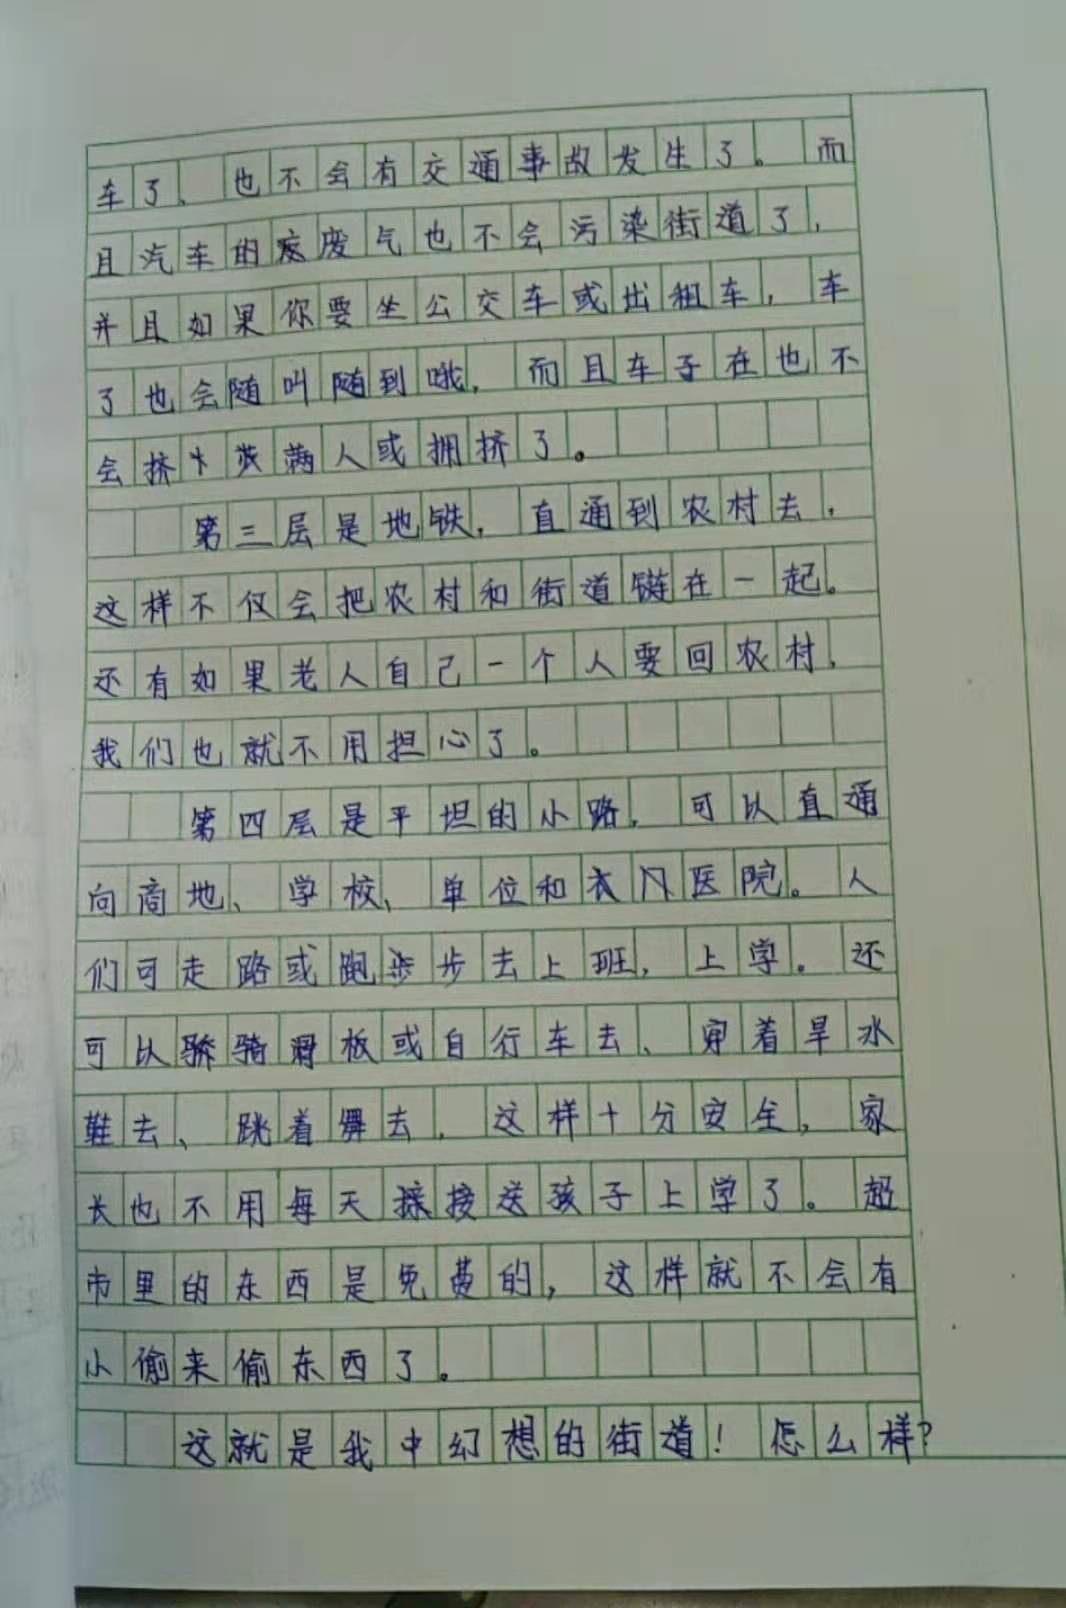 车了、也不会有交通事故发生了。而
且汽车的废气也不会污染街道了，
并且如果你要坐公交车或出租车，车
了也会随叫随到哦，而且车子在也不
会挤满人或拥挤了。
第三层是地铁，直通到农村去，
这样不仅会把农村和街道链在一起。
还有如果老人自己一个人要回农村，
我们也就不用担心了。
第四层是平坦的小路，可以直通
向商地、学校、单位和医院。人
们可走路或跑步去上班，上学。还
可以骑滑板或自行车去、穿着旱水
鞋去、跳着舞去，这样十分安全，家
长也不用每天接送孩子上学了。超
市里的东西是免费的，这样就不会有
小偷来偷东西了。
这就是我中幻想的街道！怎么样？